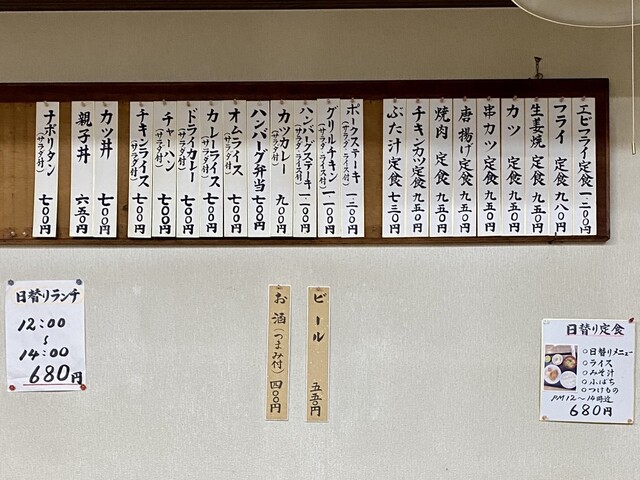 エビフライ定食 一二〇〇円
フライ 定食 九八〇円
生姜焼 定食 九五〇円
カツ 定食 九五〇円
串カツ定食 九五〇円
唐揚げ定食 九五〇円
焼肉 定食 九五〇円
チキンカツ定食 九五〇円
ぶた汁定食 七三〇円
ポークステーキ(サラダ ライス付) 一二〇〇円
グリルチキン(サラダ ライス付) 一一〇〇円
ハンバーグステーキ(サラダ ライス付) 一一〇〇円
カツカレー 九〇〇円
ハンバーグ弁当 七〇〇円
オムライス(サラダ付) 七〇〇円
カレーライス(サラダ付) 七〇〇円
ドライカレー(サラダ付) 七〇〇円
チャーハン(サラダ付) 七〇〇円
チキンライス(サラダ付) 七〇〇円
カツ丼 七〇〇円
親子丼 六五〇円
ナポリタン(サラダ付) 七〇〇円
日替りランチ
12:00
~
14:00
680円
ビール 五五〇円
お酒(つまみ付) 四〇〇円
日替り定食
○日替りメニュー
○ライス
○みそ汁
○ふばち
○つけもの
PM12~14時迄
680円